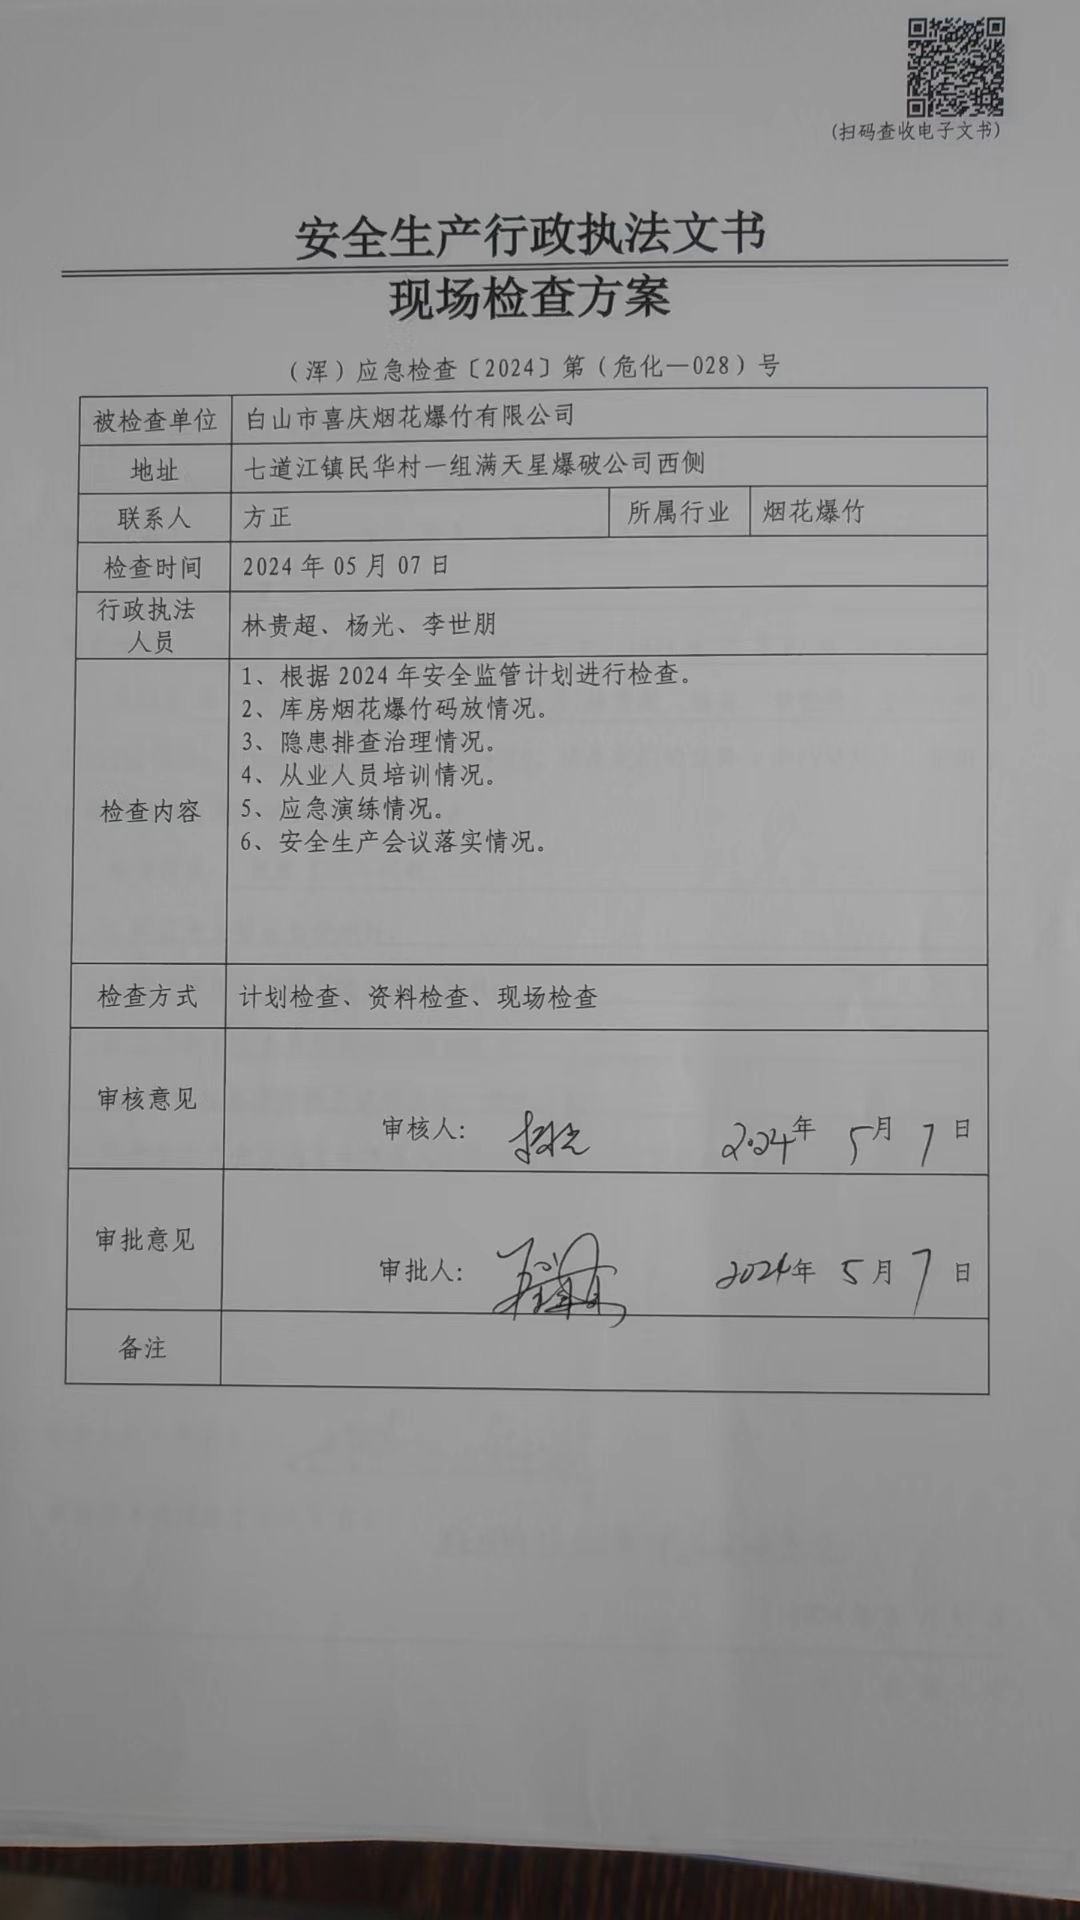 (扫码查收电子文书)
安全生产行政执法文书
现场检查方案
（浑）应急检查〔2024〕第（危化—028）号
被检查单位 白山市喜庆烟花爆竹有限公司
地址 七道江镇民华村一组满天星爆破公司西侧
联系人 方正 所属行业 烟花爆竹
检查时间 2024 年 05 月 07 日
行政执法
人员
林贵超、杨光、李世朋
检查内容
1、根据 2024 年安全监管计划进行检查。
2、库房烟花爆竹码放情况。
3、隐患排查治理情况。
4、从业人员培训情况。
5、应急演练情况。
6、安全生产会议落实情况。
检查方式 计划检查、资料检查、现场检查
审核意见
审核人: 2024年 5月 7日
审批意见
审批人: 2024年 5月 7日
备注